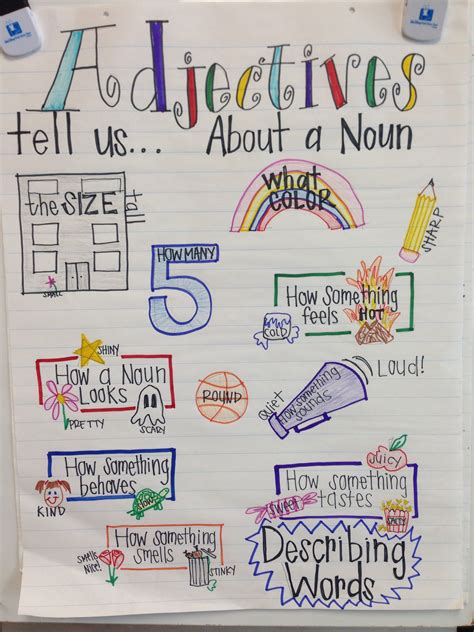 Adjectives
tell us... About a Noun
the SIZE
tall
SMALL
what
COLOR
SHARP
HOW MANY
5
How something
feels HOT
COLD
SHINY
How a Noun
Looks
PRETTY
SCARY
ROUND
Quiet
How something
sounds
Loud!
How something
behaves
KIND
SLOW
JUICY
How something
tastes
SWEET
SALTY
How something
smells
SMELLS
NICE!
STINKY
Describing
Words